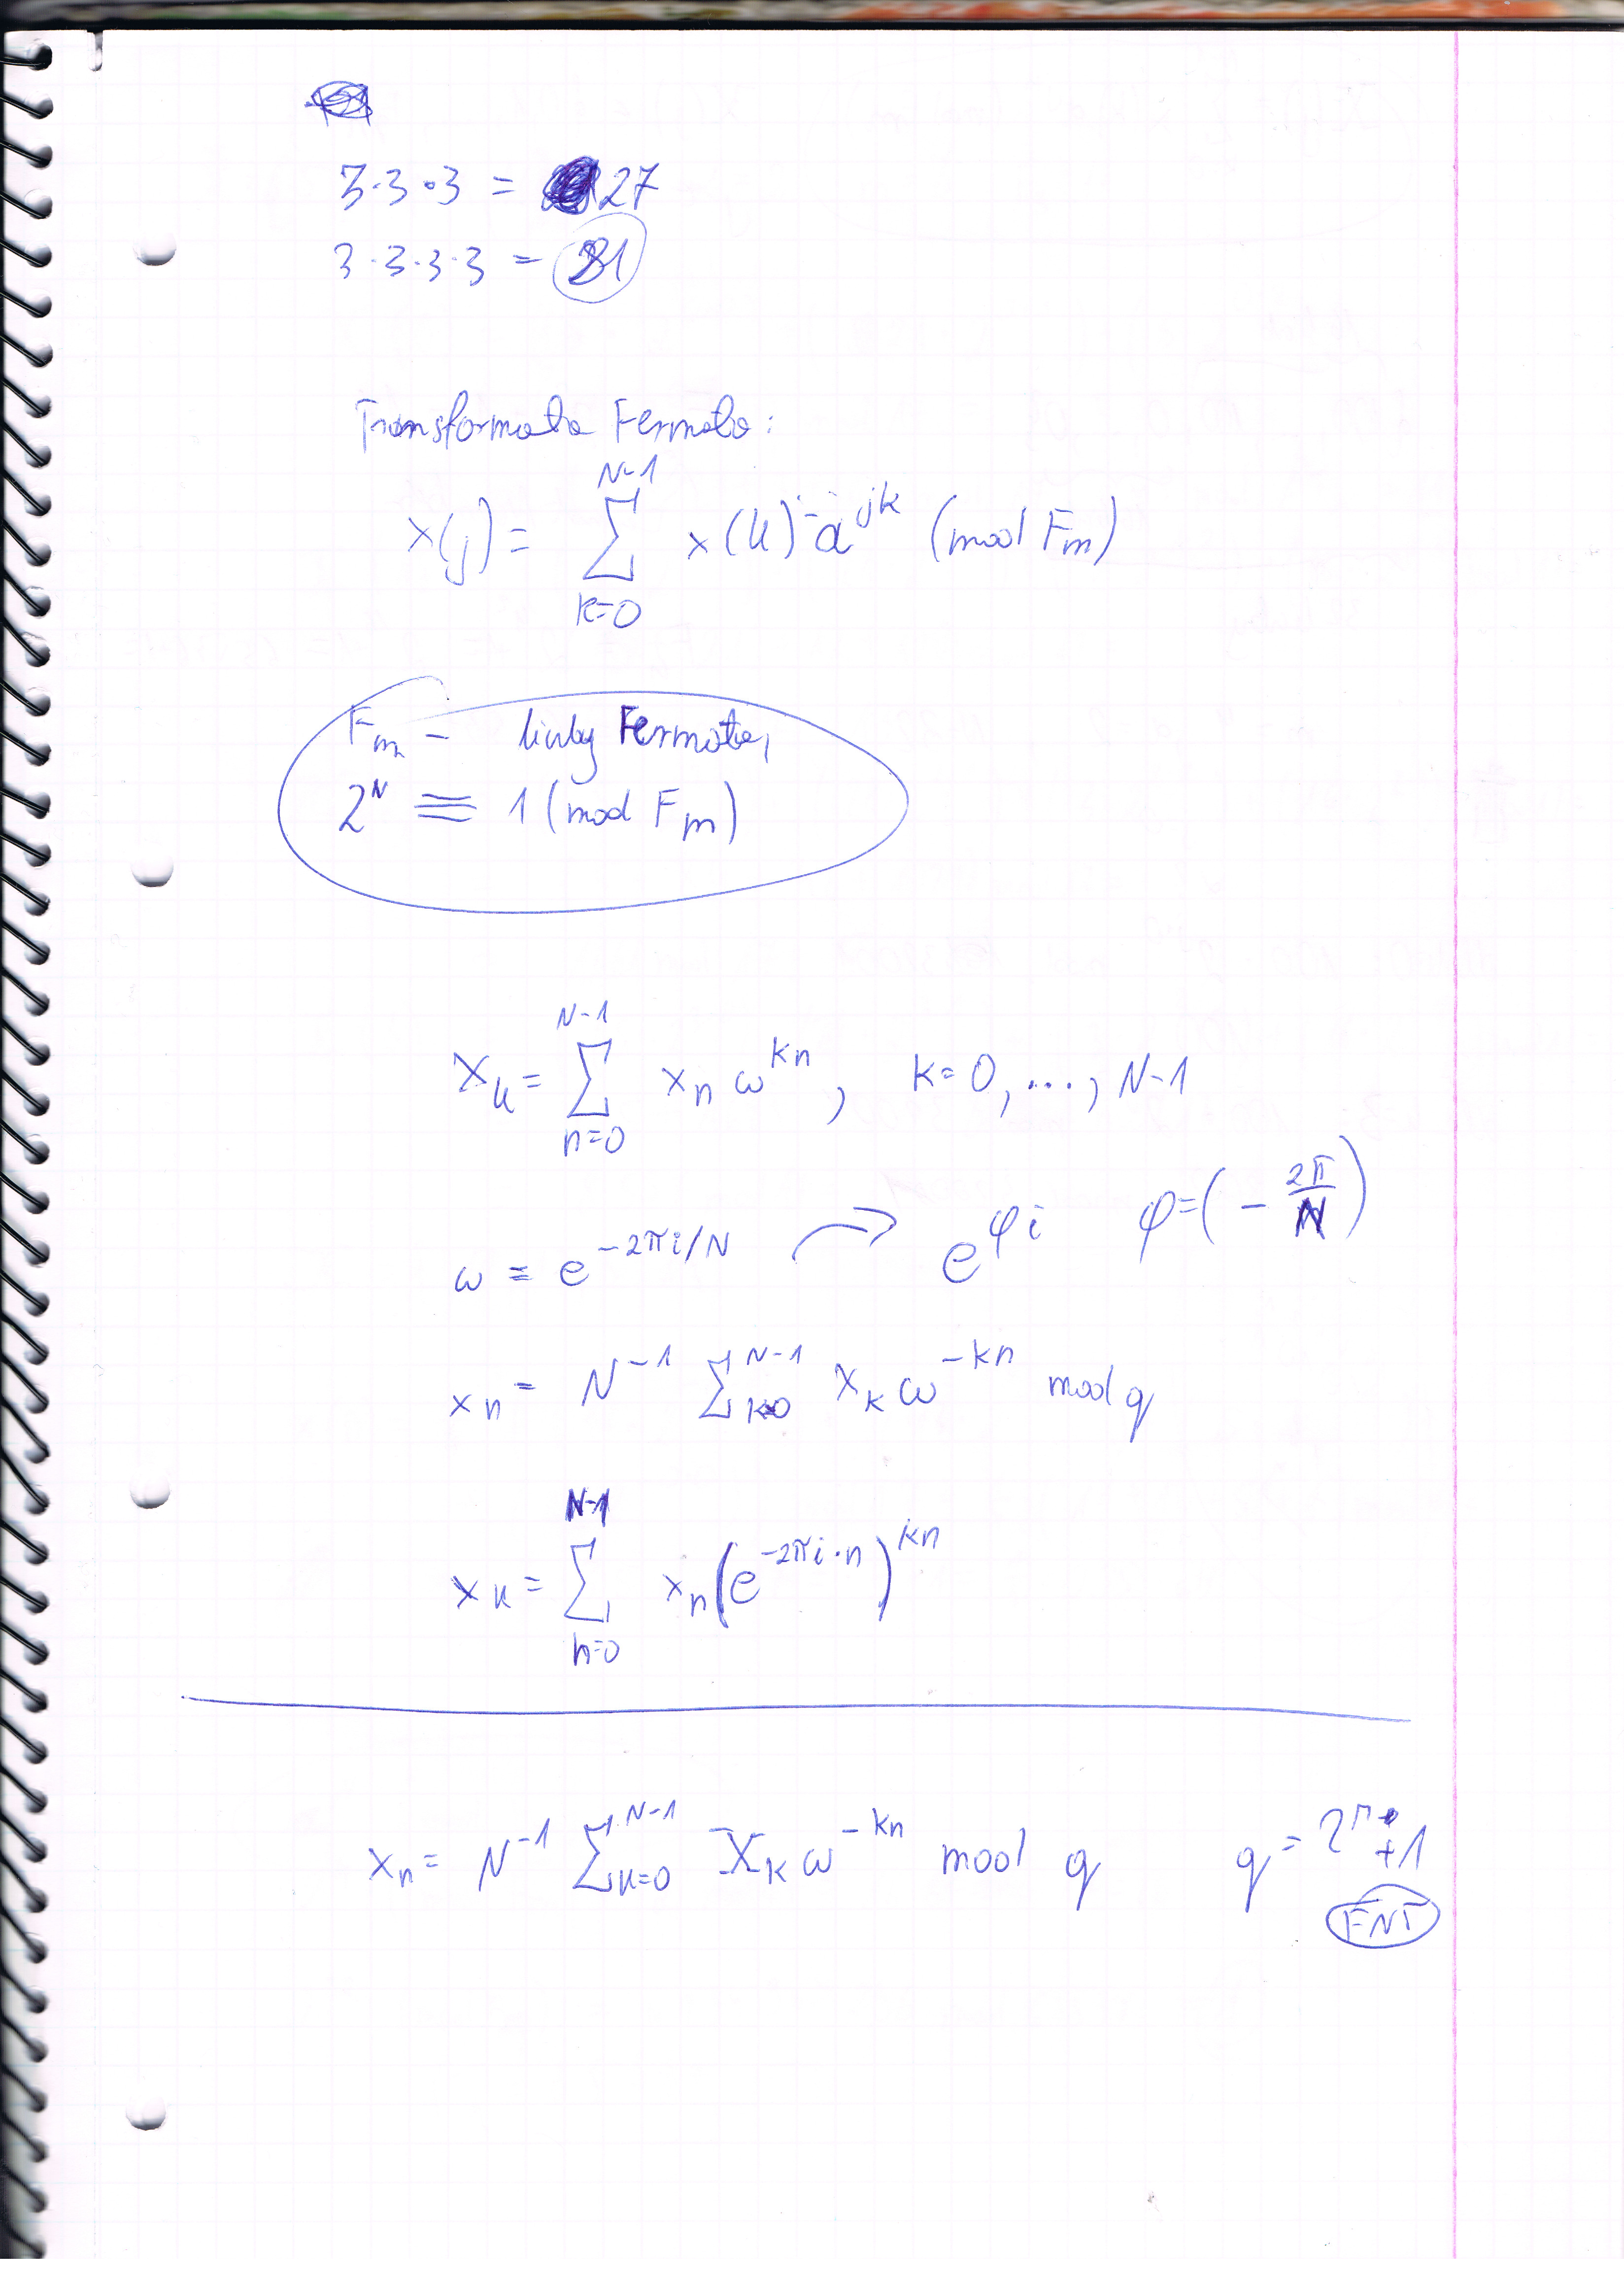 3·3·3 = 27
3·3·3·3 = 81
Transformata Fermata:
x(j) = \sum_{k=0}^{N-1} x(k) · a^{jk} (mod F_m)
F_m - liczby Fermata,
2^N ≡ 1 (mod F_m)
X_k = \sum_{n=0}^{N-1} x_n ω^{kn}, k=0, ..., N-1
ω = e^{-2πi/N} → e^{φi} φ=(-\frac{2π}{N})
x_n = N^{-1} \sum_{k=0}^{N-1} X_k ω^{-kn} mod q
x_k = \sum_{n=0}^{N-1} x_n (e^{-2πi·n})^{kn}
x_n = N^{-1} \sum_{k=0}^{N-1} X_k ω^{-kn} mod q q = 2^n+1
FNT